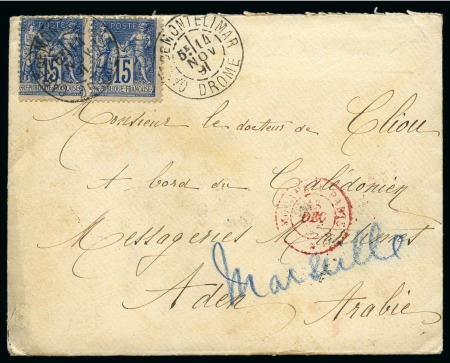 POSTES POSTES
15 15
REPUBLIQUE FRANCAISE REPUBLIQUE FRANCAISE
MONTELIMAR
14
NOV
91
DROME
Monsieur le docteur de Cliou
A bord du Calédonien
DEC
Messageries Maritimes
Marseille
Aden Arabie